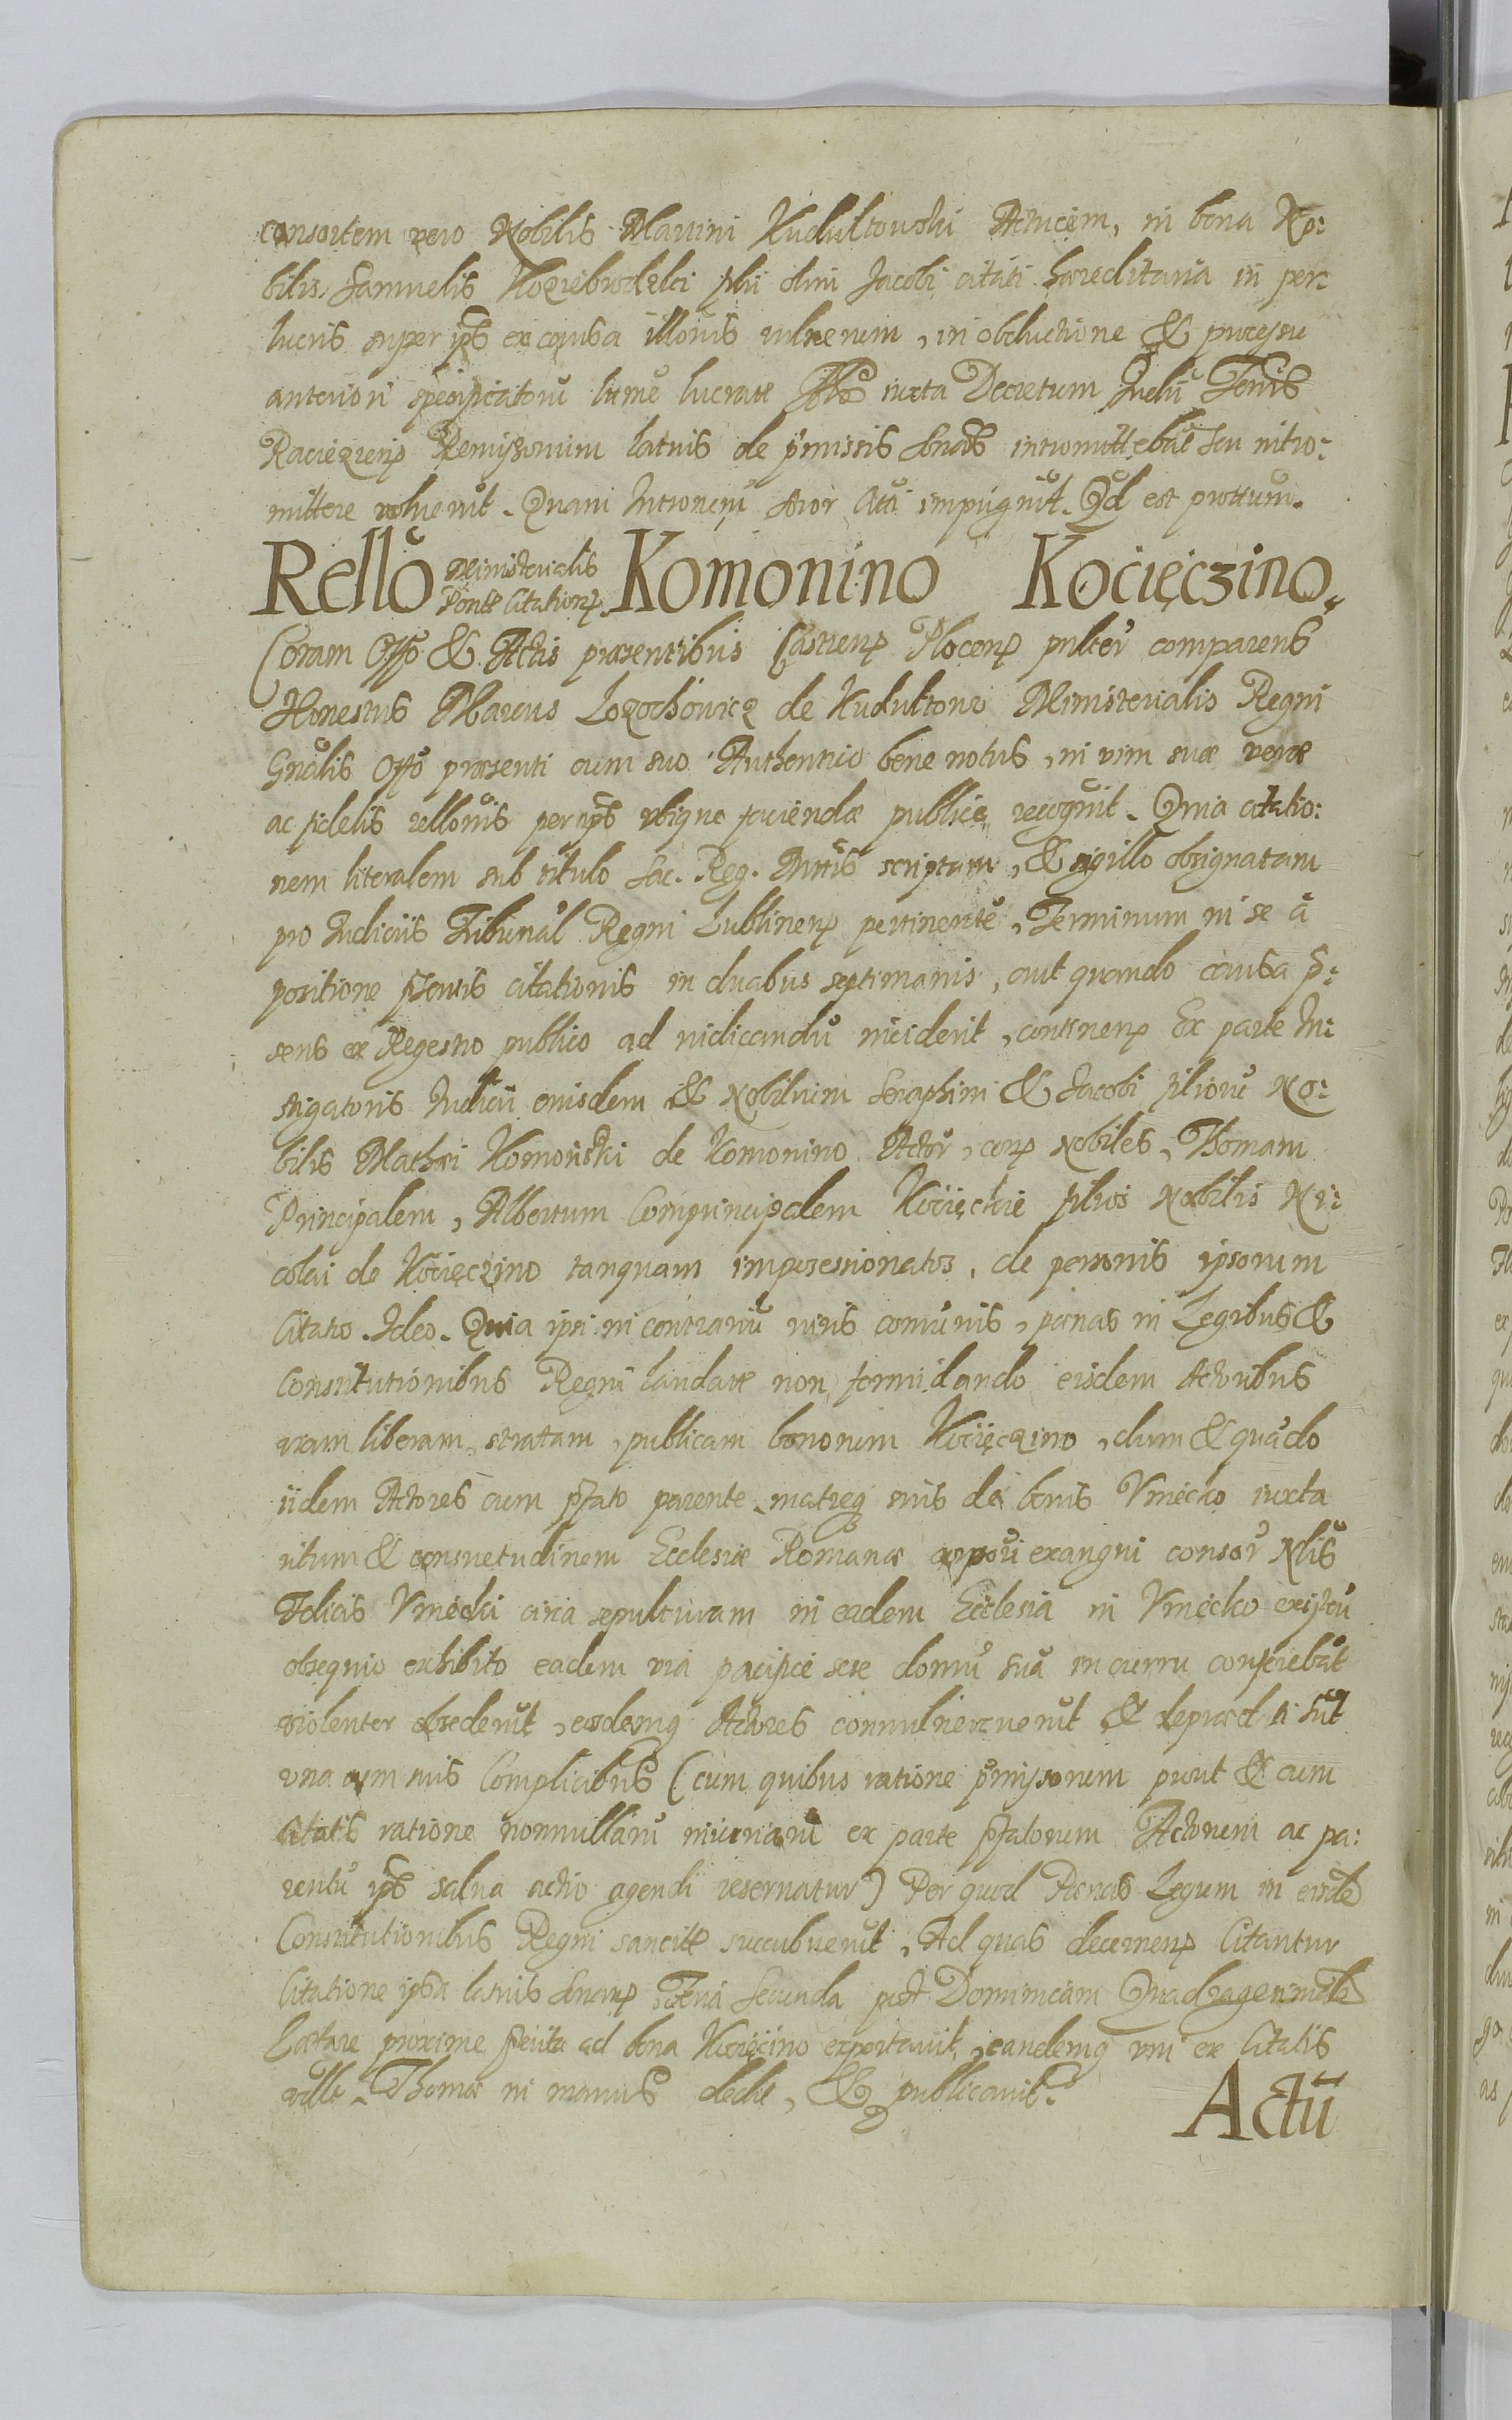 consortem vero Nobilis Martini Kudultowski Actricem, in bona No:
bilis Samuelis Koziebrodzki filii olim Jacobi citati haereditaria in per:
lucris super ips ex causa illonis vulnerum, in obductione & processu
anteriori specificatoru lrme lucratae iuxta Decretum Judii Terris
Raciązens Remissorium latius de pmissis sonans intromittebat seu intro:
mittere voluerūt. Quam Intronem soror Citati impugnūt. Qđ est prottum.
Rello Ministerialis Komonino Kocięczino.
Pontae Citationis
Coram Offo & Actis praesentibus Castrens Plocens pulter comparens
Honestus Marcus Lozochowicz de Kudultowo Ministerialis Regni
Gnalis Offo praesenti cum suo Authentico bene notus, in vim suae verae
ac fidelis rellonis per ips vbique faciendae publice recognit. Quia citatio:
nem literalem sub titulo Sac. Reg. Mttis scriptam, & sigillo obsignatam
pro Judiciis Tribunal Regni Lublinens pertinente, Terminum in se à
positione psentis citationis in duabus septimanis, aut quando causa p:
sens ex Regestro publico ad iudicandū inciderit, continens Ex parte In:
stigatoris Judicii eiusdem & Nobilium Seraphini & Jacobi filioru No:
bilis Mathaei Komoński de Komonino Actor, cons Nobiles, Thomam
Principalem, Albertum Comprincipalem Kocięckie filios Nobilis Ni:
colai de Kocięczino tanquam impossessionatos, de personis ipsorum
Citato. Ideo. Quia ipsi in contrariū iuris comunis, paenas in Legibus &
Constitutionibus Regni laudatae non formidando eisdem Actoribus
viam liberam, stratam, publicam bonorum Kocięczino, dum & quādo
iidem Actores cum pfato parente matreq suis de bonis Vniecko iuxta
ritum & consuetudinem Ecclesiae Romanae corpori exangui consor Nlis
Felicis Vniecki circa sepulturam in eadem Ecclesia in Vniecko
obsequio exhibito eadem via pacifice sese domū suā in curru conferebāt
violenter obsederūt, eosdemq Actores convulneraverūt & depraedati sūt
vna cum suis Complicibus (cum quibus ratione pmissorum prout & cum
citatis ratione nonnullaru iniuriarū ex parte pfatorum Actorum ac pa:
rentū ips salva actio agendi reservatur) Per quod Paenas Legum in eisdē
Constitutionibus Regni sancitae succubuerūt, Ad quas decernens Citantur
Citatione ipsa latius sonans Feria Secunda post Dominicam Quadragesimalē
Laetare proxime pterita ad bona Kocięcino exportavit, eandemq vni ex Citatis
Thomae in manus dedit, & publicavit.
Actū